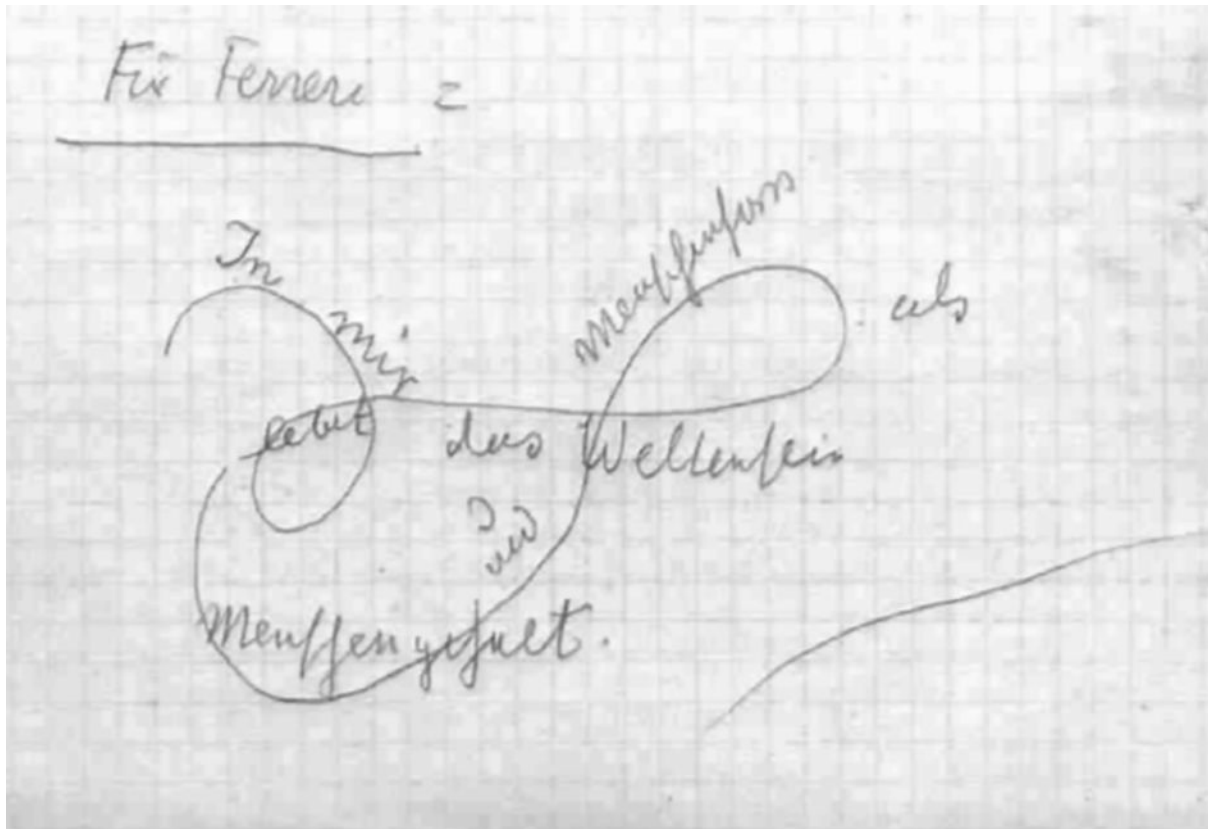 Für Ferreri =
In
mir
lebt das Weltensein
als
Menschenform
und
Menschengestalt.